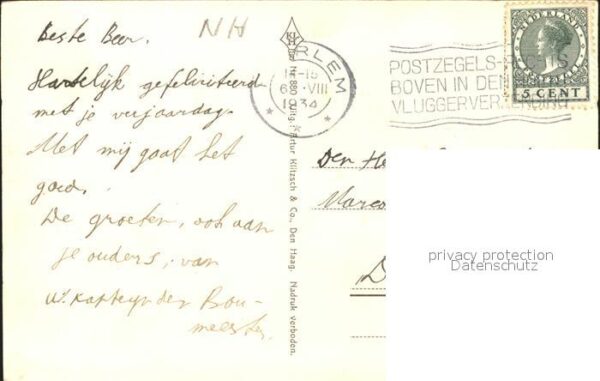 NH
Beste Beer,
Hartelijk gefeliciteerd
met je verjaardag.
Met mij gaat het
goed.
De groeten, ook aan
je ouders, van
W. Kapteyn den Bou-
meester.
RLEM
6 VIII
1934
POSTZEGELS
BOVEN IN DEN
VLUGGER
NEDERLAND
5 CENT
Artur Klitzsch & Co., Den Haag. Nadruk verboden.
Den He
D
privacy protection
Datenschutz